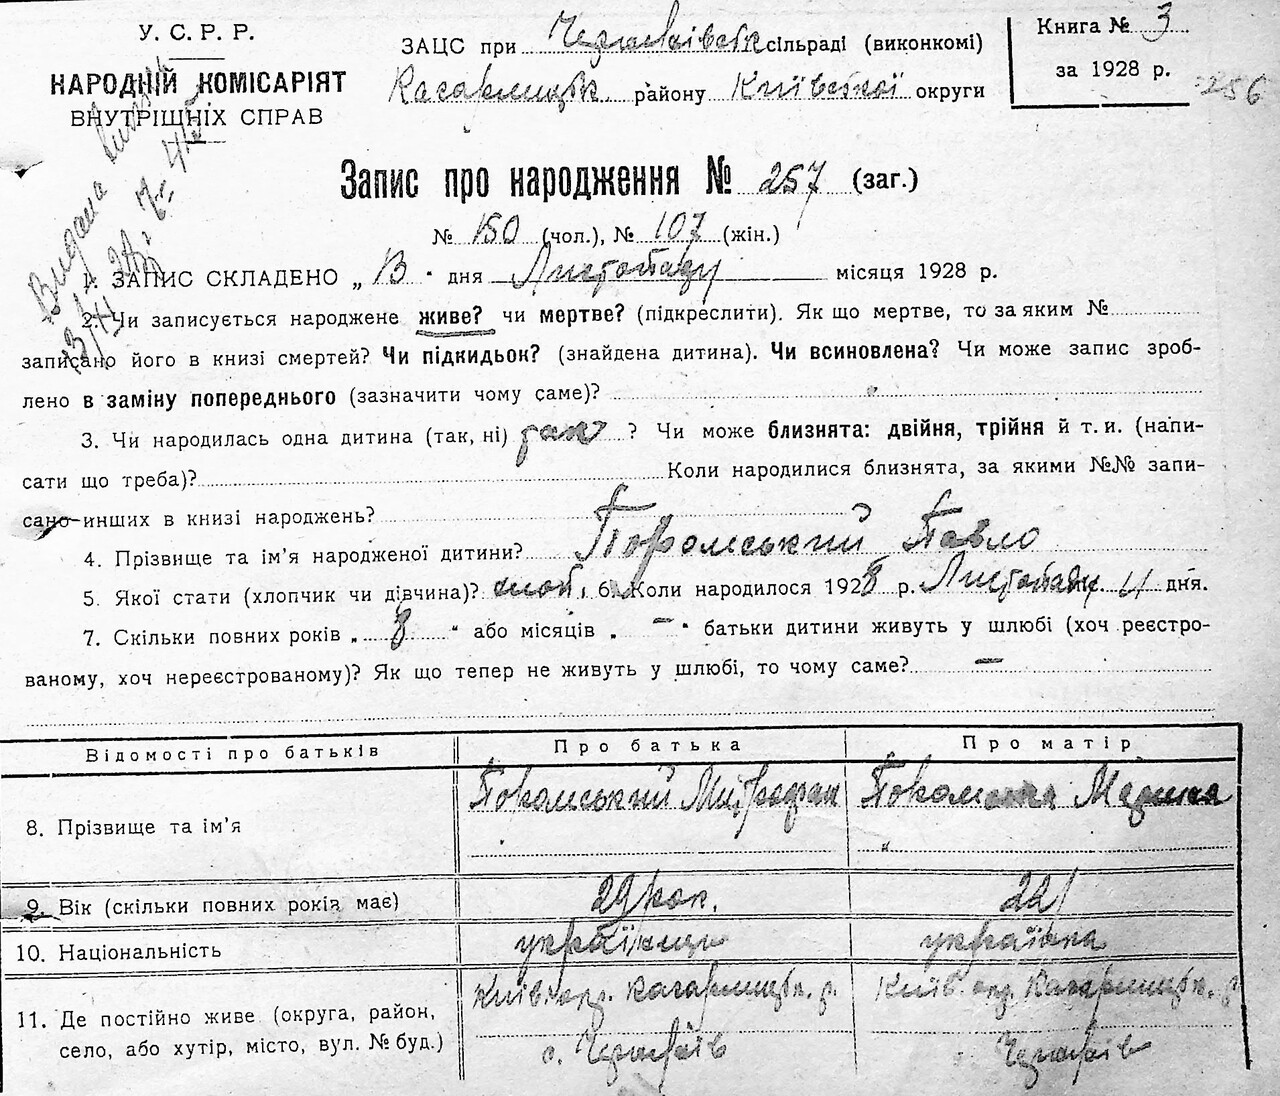 У. С. Р. Р.
НАРОДНІЙ КОМІСАРІЯТ
ВНУТРІШНІХ СПРАВ
ЗАЦС при сільраді (виконкомі)
Кагарлицьк району Київської округи
Книга № 3
за 1928 р.
256
Видана
Запис про народження № 257 (заг.)
№ 150 (чол.), № 107 (жін.)
1. ЗАПИС СКЛАДЕНО „ 13 " дня Листопаду місяця 1928 р.
2. Чи записується народжене живе? чи мертве? (підкреслити). Як що мертве, то за яким №
записано його в книзі смертей? Чи підкидьок? (знайдена дитина). Чи всиновлена? Чи може запис зроб-
лено в заміну попереднього (зазначити чому саме)?
3. Чи народилась одна дитина (так, ні) так ? Чи може близнята: двійня, трійня й т. и. (напи-
сати що треба)? Коли народилися близнята, за якими №№ запи-
сано инших в книзі народжень?
4. Прізвище та ім'я народженої дитини? Павло
5. Якої стати (хлопчик чи дівчина)? 6. Коли народилося 1928 р. Листопаду 4 дня.
7. Скільки повних років „ 8 " або місяців „ — " батьки дитини живуть у шлюбі (хоч реєстро-
ваному, хоч нереєстрованому)? Як що тепер не живуть у шлюбі, то чому саме? —
Відомості про батьків
Про батька
Про матір
8. Прізвище та ім'я
Митрофан
9. Вік (скільки повних років має)
29
22
10. Національність
українець
українка
11. Де постійно живе (округа, район,
село, або хутір, місто, вул. № буд.)
Київ. окр. Кагарлицьк. р.
Київ. окр. Кагарлицьк. р.
с.